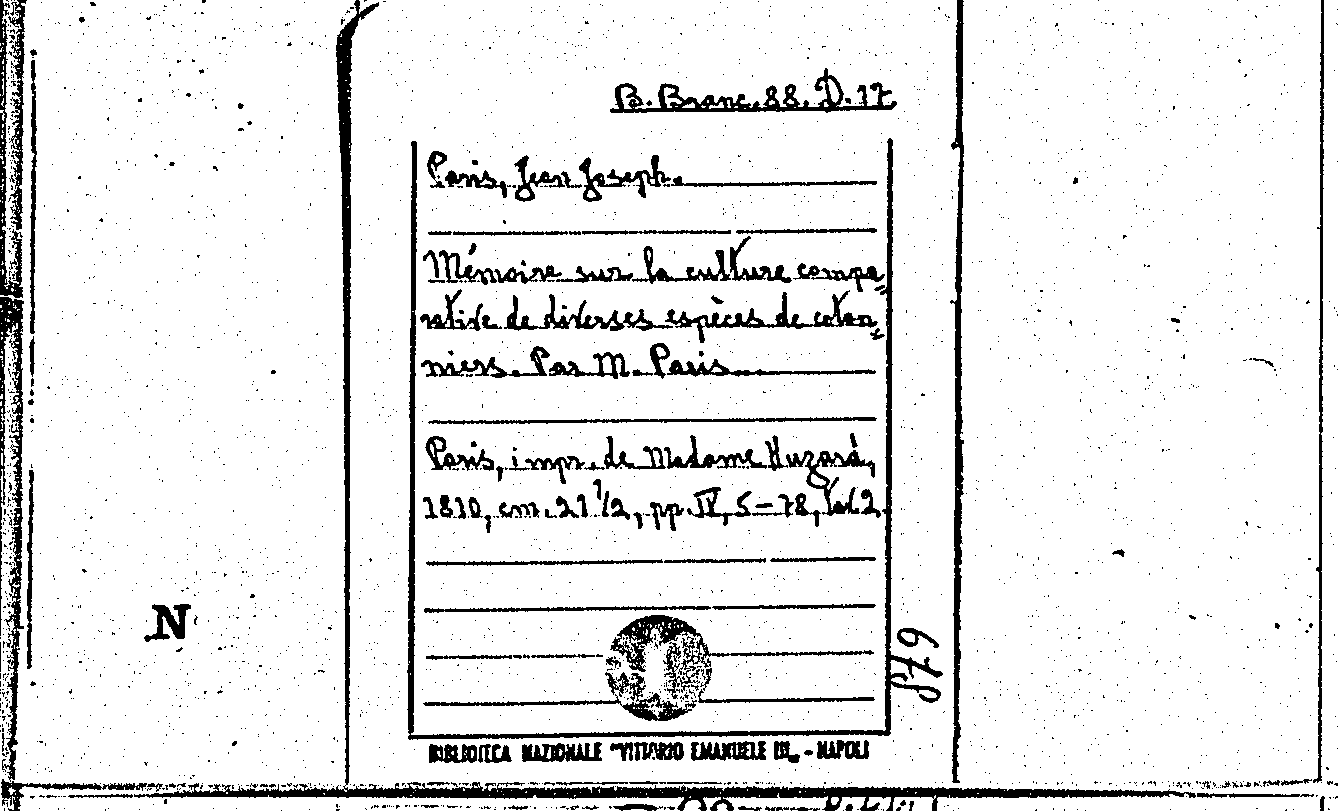 B. Branc. 88. D. 17.
Paris, Jean Joseph.
Mémoire sur la culture compa=
rative de diverses espèces de coton=
niers. Par M. Paris...
Paris, impr. de Madame Huzard,
1810, cm. 21 1/2, pp. IV, 5-78,
N
679
BIBLIOTECA NAZIONALE "VITTORIO EMANUELE III„ - NAPOLI